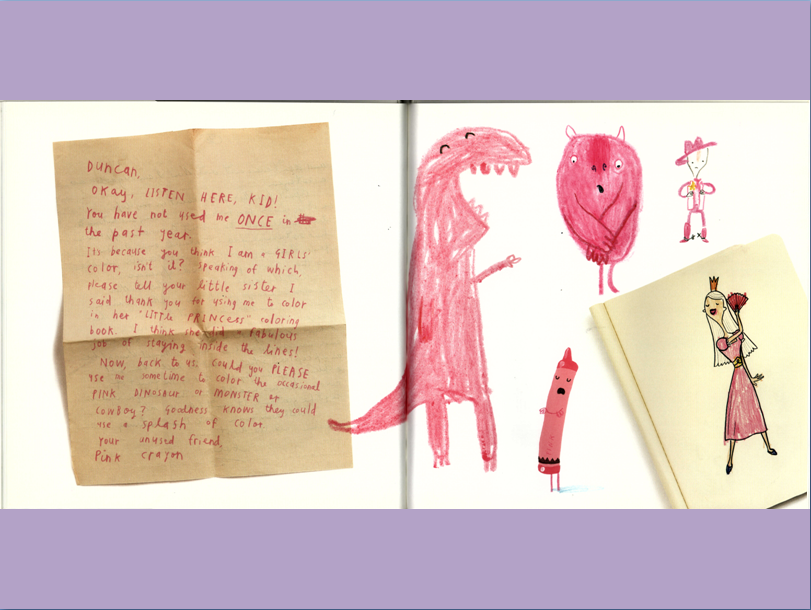 Duncan,
Okay, LISTEN HERE, KID!
You have not used me ONCE in
the past year.
It's because you think I am a GIRLS'
color, isn't it? Speaking of which,
please tell your little sister I
said thank you for using me to color
in her "Little PRINCess" coloring
book. I think she did a fabulous
job of staying inside the lines!
Now, back to us. Could you PLEASE
use me sometime to color the occasional
PINK DINOSAUR or MONSTER or
COWBOY? Goodness knows they could
use a splash of color.
Your unused friend,
Pink crayon